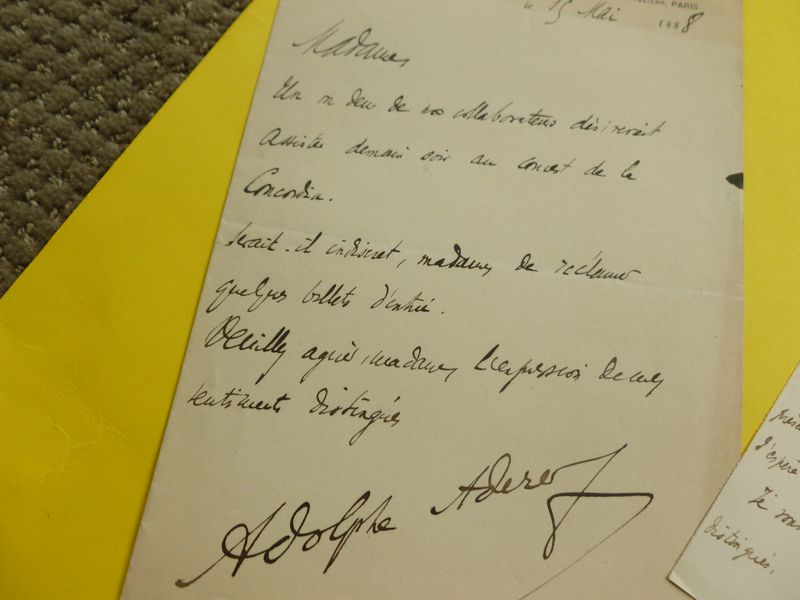 PARIS
le 15 Mai 1888
Madame,
Un ou deux de nos collaborateurs désirerait
assister demain soir au concert de la
Concordia.
Serait-il indiscret, madame, de réclamer
quelques billets d'entrée.
Veuillez agréer, madame, l'expression de mes
sentiments distingués
Adolphe Aderer
J'espère
Je vous
distingués.